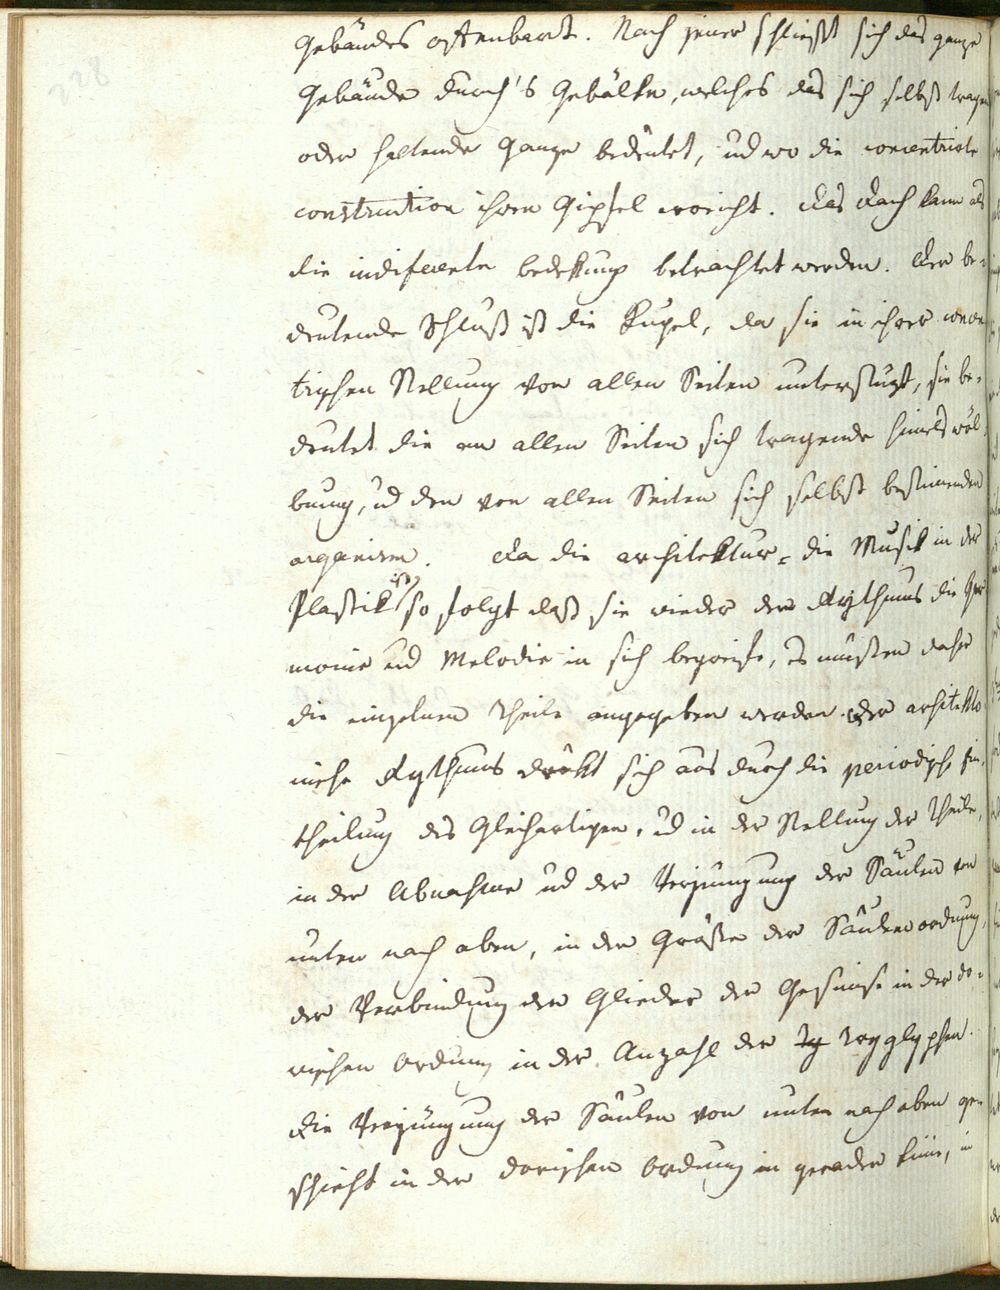 228
Gebäudes offenbart. Nach jener schließt sich das ganze
Gebäude durch's Gebälke, welches das sich selbst tragen
oder haltende Ganze bedeutet, ud wo die concentrirte
construction ihren Gipfel erreicht. Das Dach kann als
die indifferente bedekung betrachtet werden. Der be-
deutende Schluß ist die Kugel, da sie in ihrer concen
trischen Stellung von allen Seiten unterstüzt, sie be-
deutet die von allen Seiten sich tragende himelswöl
bung, ud den von allen Seiten sich selbst bestimenden
organism. Da die architektur = die Musik in der
Plastik ist, so folgt daß sie wieder den Rythmus die Har
monie ud Melodie in sich begreife, es müßen daher
die einzelnen Theile angegeben werden. Der architekto
nische Rythmus drükt sich aus durch die periodische Ein-
theilung des Gleichartigen, ud in der Stellung der Theile,
in der Abnahme ud der Verjüngung der Säulen von
unten nach oben, in der Größe der Säulenordnung,
der Verbindung der Glieder der Gesimse in der do-
rischen Ordnung in der Anzahl der Try Tryglyphen.
Die Verjüngung der Säulen von unten nach oben ge-
schieht in der dorischen Ordnung in gerader Linie, in